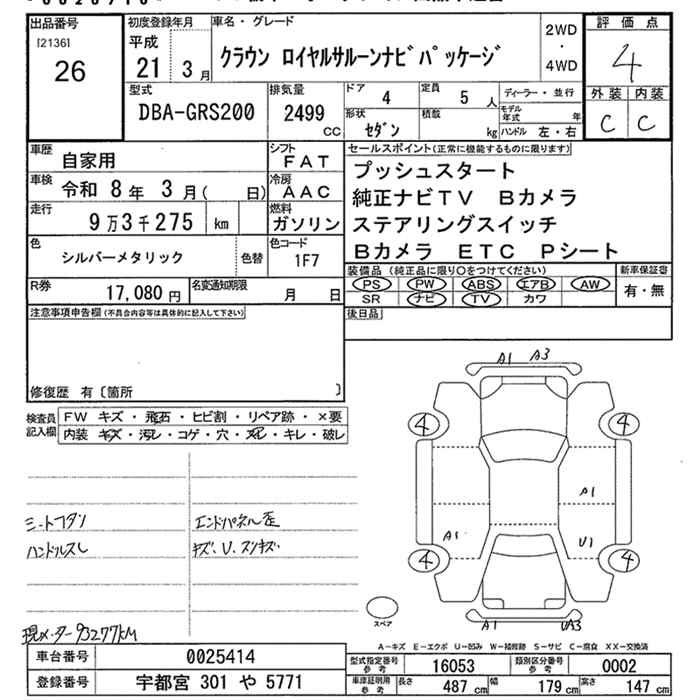 出品番号
[2136]
26
初度登録年月
平成
21 3月
車名・グレード
クラウン ロイヤルサルーンナビパッケージ
2WD
・
4WD
評価点
4
外装 内装
C C
型式
DBA-GRS200
排気量
2499
CC
ドア 4
定員 5人
形状 セダン
積載 kg
ディーラー・並行
モデル年式 年
ハンドル 左・右
車歴 自家用
シフト FAT
車検 令和 8年 3月( 日)
冷房 AAC
走行 9万3千275 km
燃料 ガソリン
色 シルバーメタリック 色替
色コード 1F7
R券 17,080円
名変通知期限 月 日
セールスポイント(正常に機能するものに限ります)
プッシュスタート
純正ナビTV Bカメラ
ステアリングスイッチ
Bカメラ ETC Pシート
装備品(純正品に限り○をつけてください)
PS PW ABS エアB AW
SR ナビ TV カワ
新車保証書
有・無
後日品
注意事項申告欄(不具合内容等は具体的に記入して下さい)
修復歴 有〔箇所 〕
検査員記入欄
FW キズ・飛石・ヒビ割・リペア跡・×要
内装 キズ・汚レ・コゲ・穴・スレ・キレ・破レ
シートコゲ
ハンドルスレ
エンドパネル歪
キズ、U、スリキズ
現メーター93277KM
A1 A3
4 4
A1
A1 U1
4 4
A1 UA3
スペア
A-キズ E-エクボ U-凹み W-補修跡 S-サビ C-腐食 XX-交換済
車台番号 0025414
登録番号 宇都宮 301 や 5771
型式指定番号 参考 16053
類別区分番号 参考 0002
車庫証明用 参考 長さ 487cm 幅 179cm 高さ 147cm